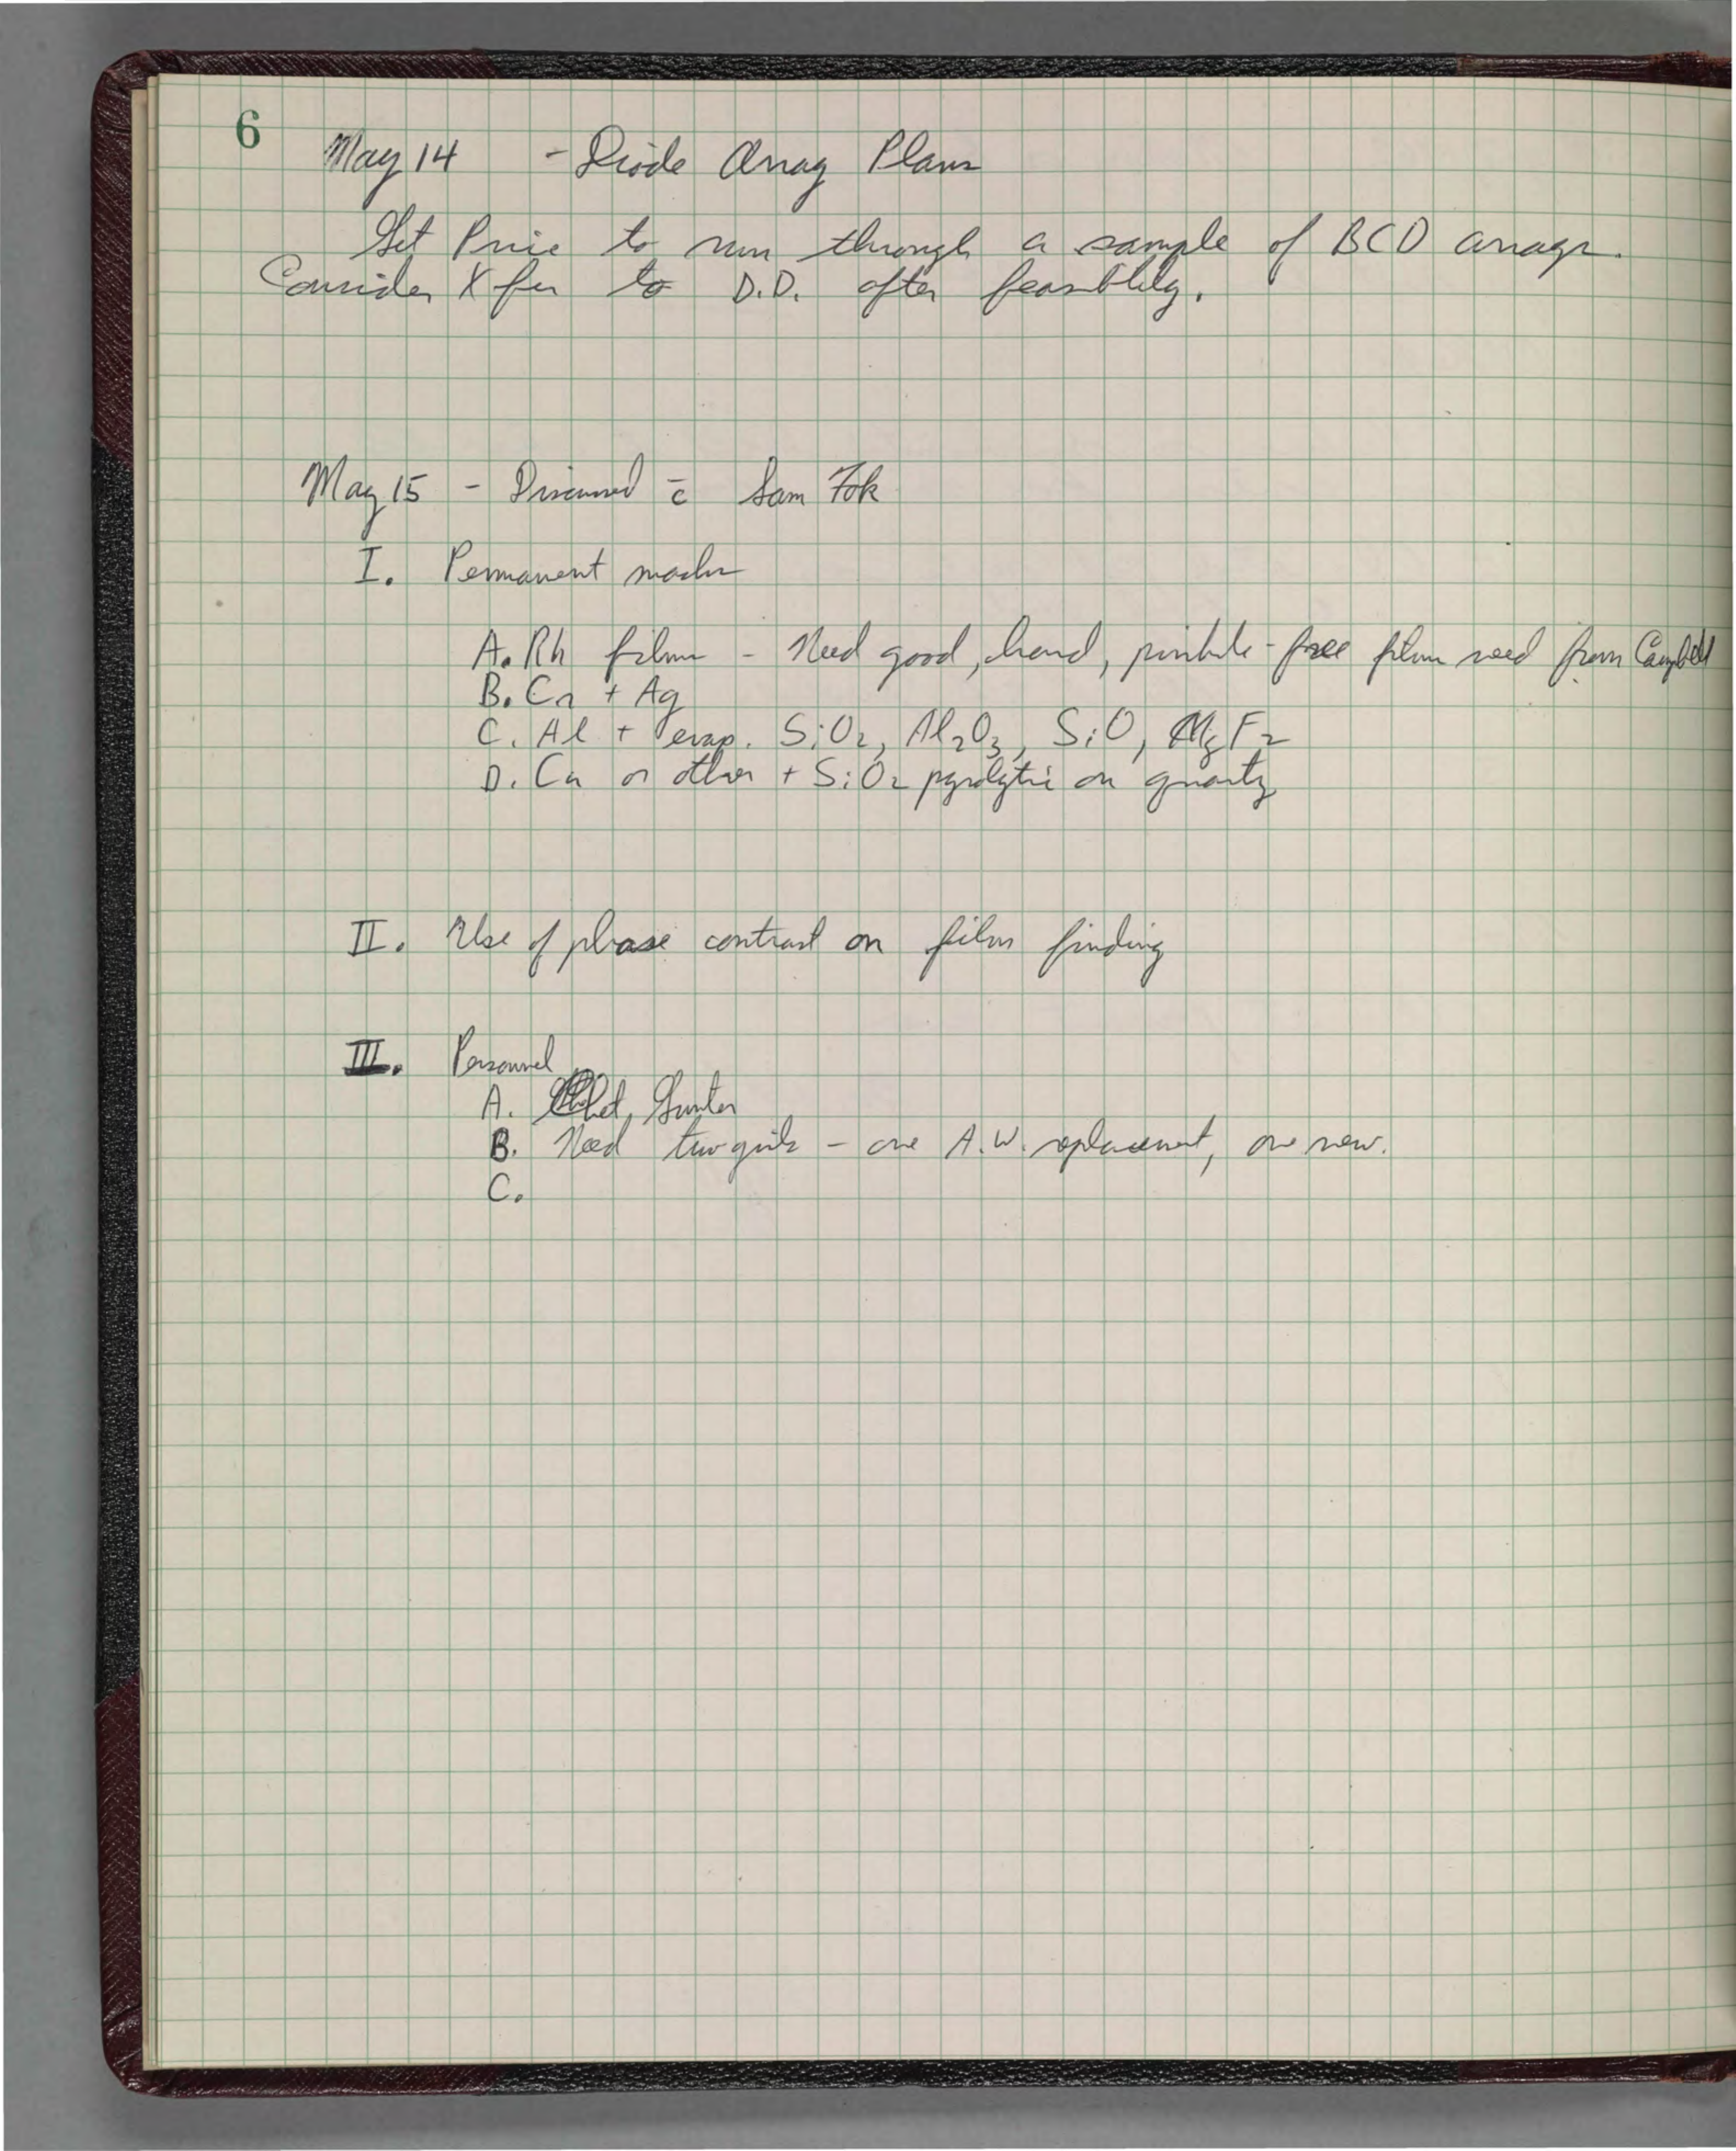 6
May 14 - Diode Array Plans
Get Price to run through a sample of BCD arrays.
Consider Xfer to D.D. after feasiblily.
May 15 - Discussed c̄ Sam Fok
I. Permanent masks
A. Rh films - Need good, hard, pinhole-free films need from Campbell
B. Cr + Ag
C. Al + evap. SiO2, Al2O3, SiO, MgF2
D. Cr or other + SiO2 pyrolytic on quartz
II. Use of phase contrast on film finding
III. Personnel
A. Chet, Gunter
B. Need two girls - one A.W. replacement, one new.
C.